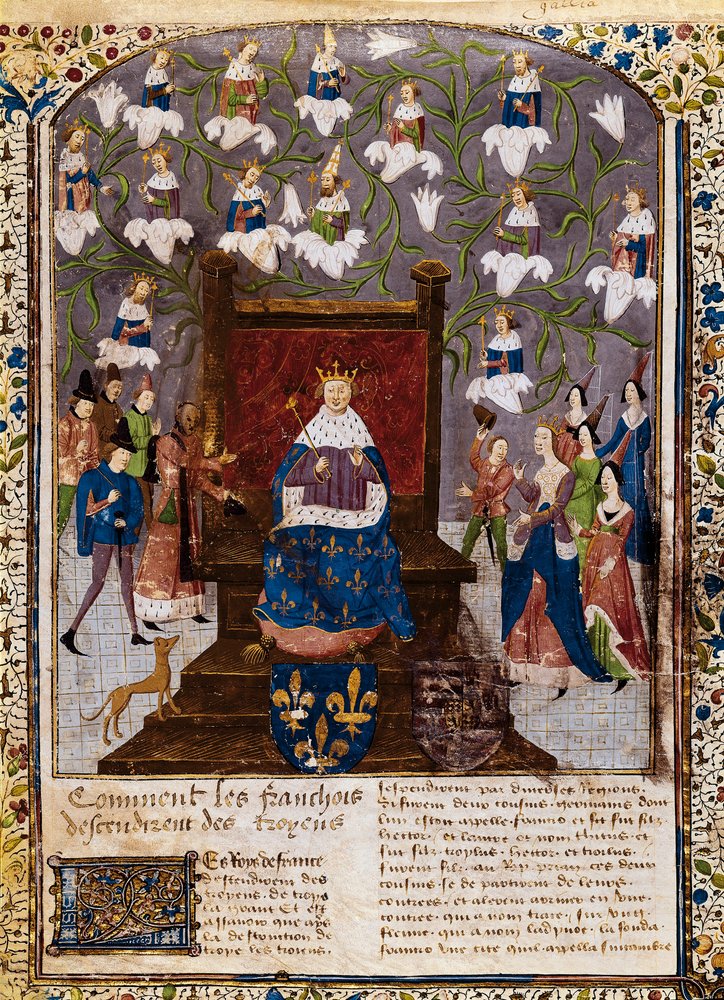 gallia
Comment les franchois
descendirent des troyens
Les Roys de france
descendirent des
troyens de troye
la grant Et est
assavoir que aps
la destruction de
troye les troiens.
sespandirent par diverses regions.
Si furent deux cousins germains dont
lun estoit appelle francio et fut filz
hector et lautre et nom turcus et
fut filz troylus. hector et troilus.
furent filz au Roy. prian. ces deux
cousins se departirent de leurs
contrees. et alerent arriver en une
contree. qui a nom trace. sur une
qui a nom la fonda
francio une cite quil appella